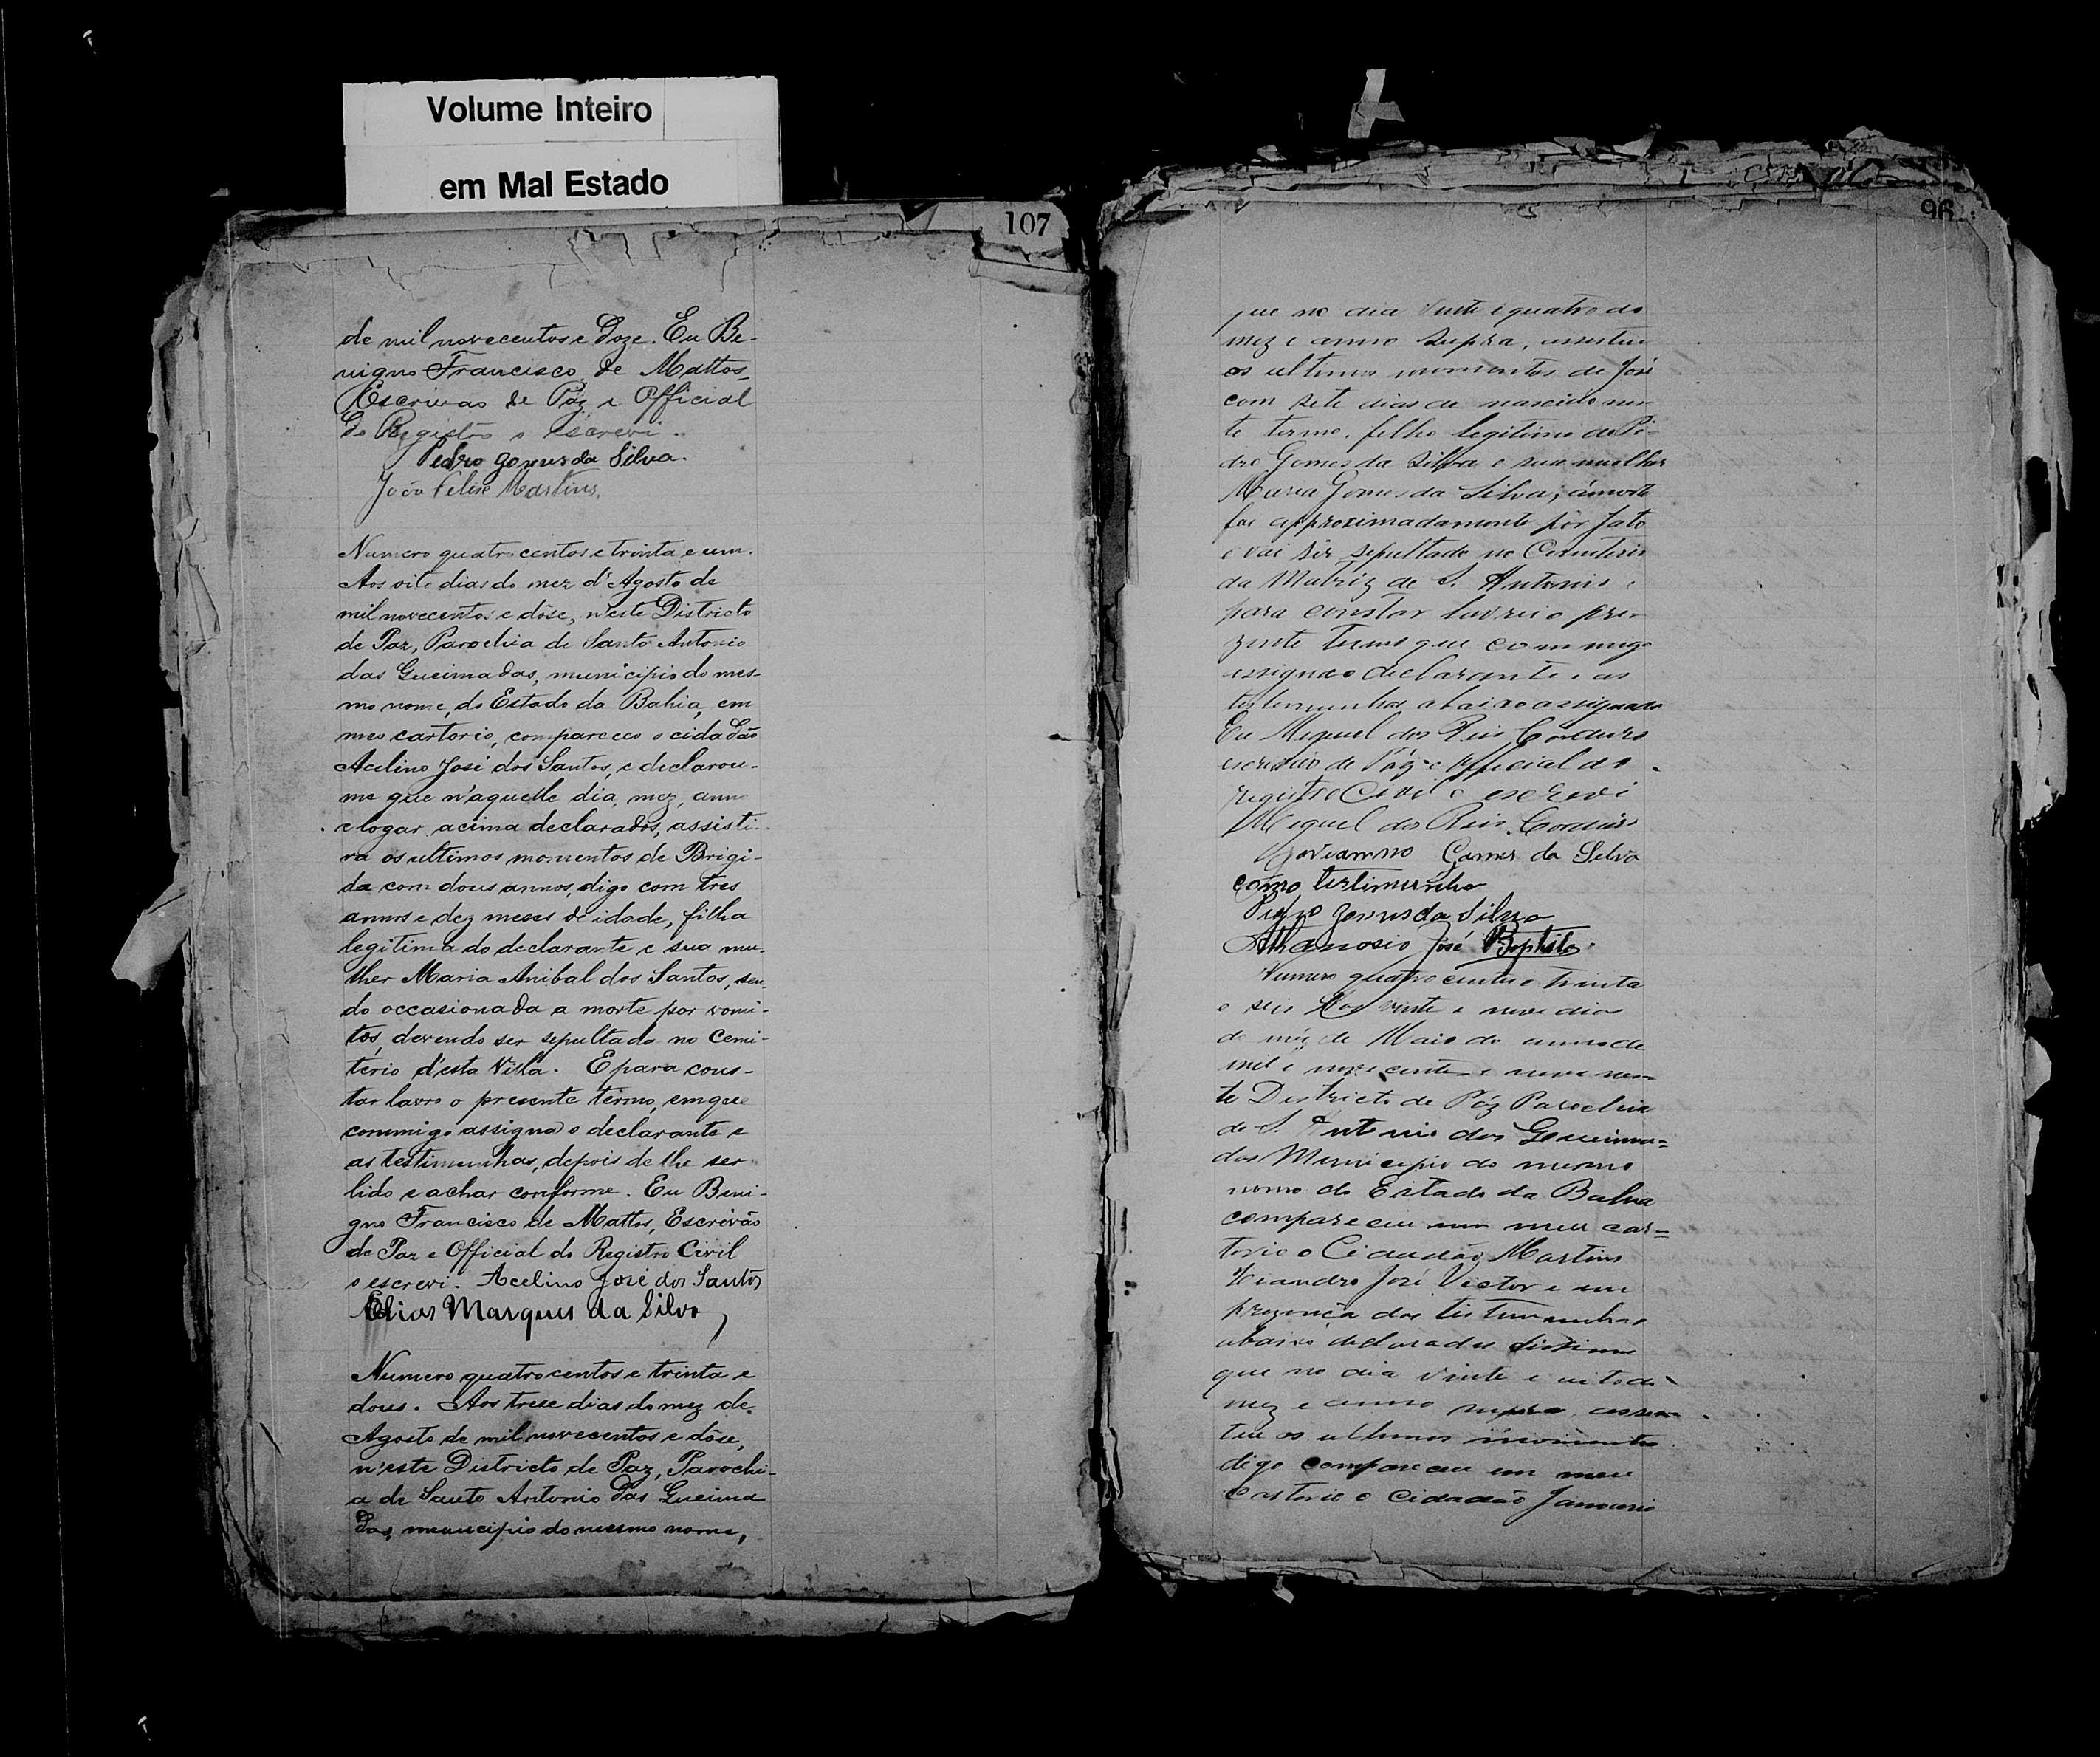 Volume Inteiro
em Mal Estado
107
de mil novecentos e Doze. Eu Be-
nigno Francisco de Mattos
Escrivao de Paz e Official
do Registro o escrevi.
Pedro Gomes da Silva.
João Felix Martins.
Numero quatrocentos e trinta e um.
Aos oito dias do mez d'Agosto de
mil novecentos e dóse, n'este Districto
de Paz, Parochia de Santo Antonio
das Queimadas, municipio do mes-
mo nome, do Estado da Bahia, em
meu cartorio, compareceo o cidadão
Acelino José dos Santos, e declarou-
me que n'aquelle dia, mez, anno
e logar acima declarados, assisti-
ra os ultimos momentos de Brigi-
da com dous annos, digo com tres
annos e dez meses de idade, filha
legitima do declarante e sua mu-
lher Maria Anibal dos Santos, sen-
do occasionada a morte por vomi-
tos, devendo ser sepultada no Cemi-
terio d'esta Villa. E para cons-
tar lavro o presente termo, em que
commigo assigna o declarante e
as testimunhas, depois de lhe ser
lido e achar conforme. Eu Beni-
gno Francisco de Mattos, Escrivão
de Paz e Official do Registro Civil
o escrevi. Acelino José dos Santos
Elias Marques da Silva
Numero quatrocentos e trinta e
dous. Aos trese dias do mez de
Agosto de mil novecentos e dóse,
n'este Districto de Paz, Parochi-
a de Santo Antonio das Queima
das, municipio do mesmo nome,
96
que no dia vinte e quatro do
mez e anno supra, assistiu
os ultimos momentos de José
com sete dias de nascido nes-
te termo, filho legitimo de Pe-
dro Gomes da Silva e sua mulher
Maria Gomes da Silva; á morte
foi approximadamente por fato
e vai sêr sepultado no Cemiterio
da Matriz de S. Antonio e
para constar lavrei o pre-
zente termo que commigo
assigna o declarante e as
testemunhas abaixo assignado
Eu Miguel dos Reis Cordeiro
escrivão de Páz e Official do
registro Civil o escrevi
Miguel dos Reis Cordeiro
Gomes da Silva
como testimunha
Pedro Gomes da Silva
Athanasio José Baptista
Numero quatro centos e trinta
e seis Aos vinte e nove dias
do mêz de Maio do anno de
mil e novecentos e nove nes-
te Districto de Páz Parochia
de S. Antonio das Queima=
das Municipio do mesmo
nome do Estado da Bahia
compareceu em meu car=
torio o Cidadão Martins
José Victor e em
prezença das testemunhas
abaixo declarados
que no dia vinte e oito do
mez e anno supra assis-
tiu os ultimos momentos
digo compareceu em meu
Cartorio o Cidadão Januario